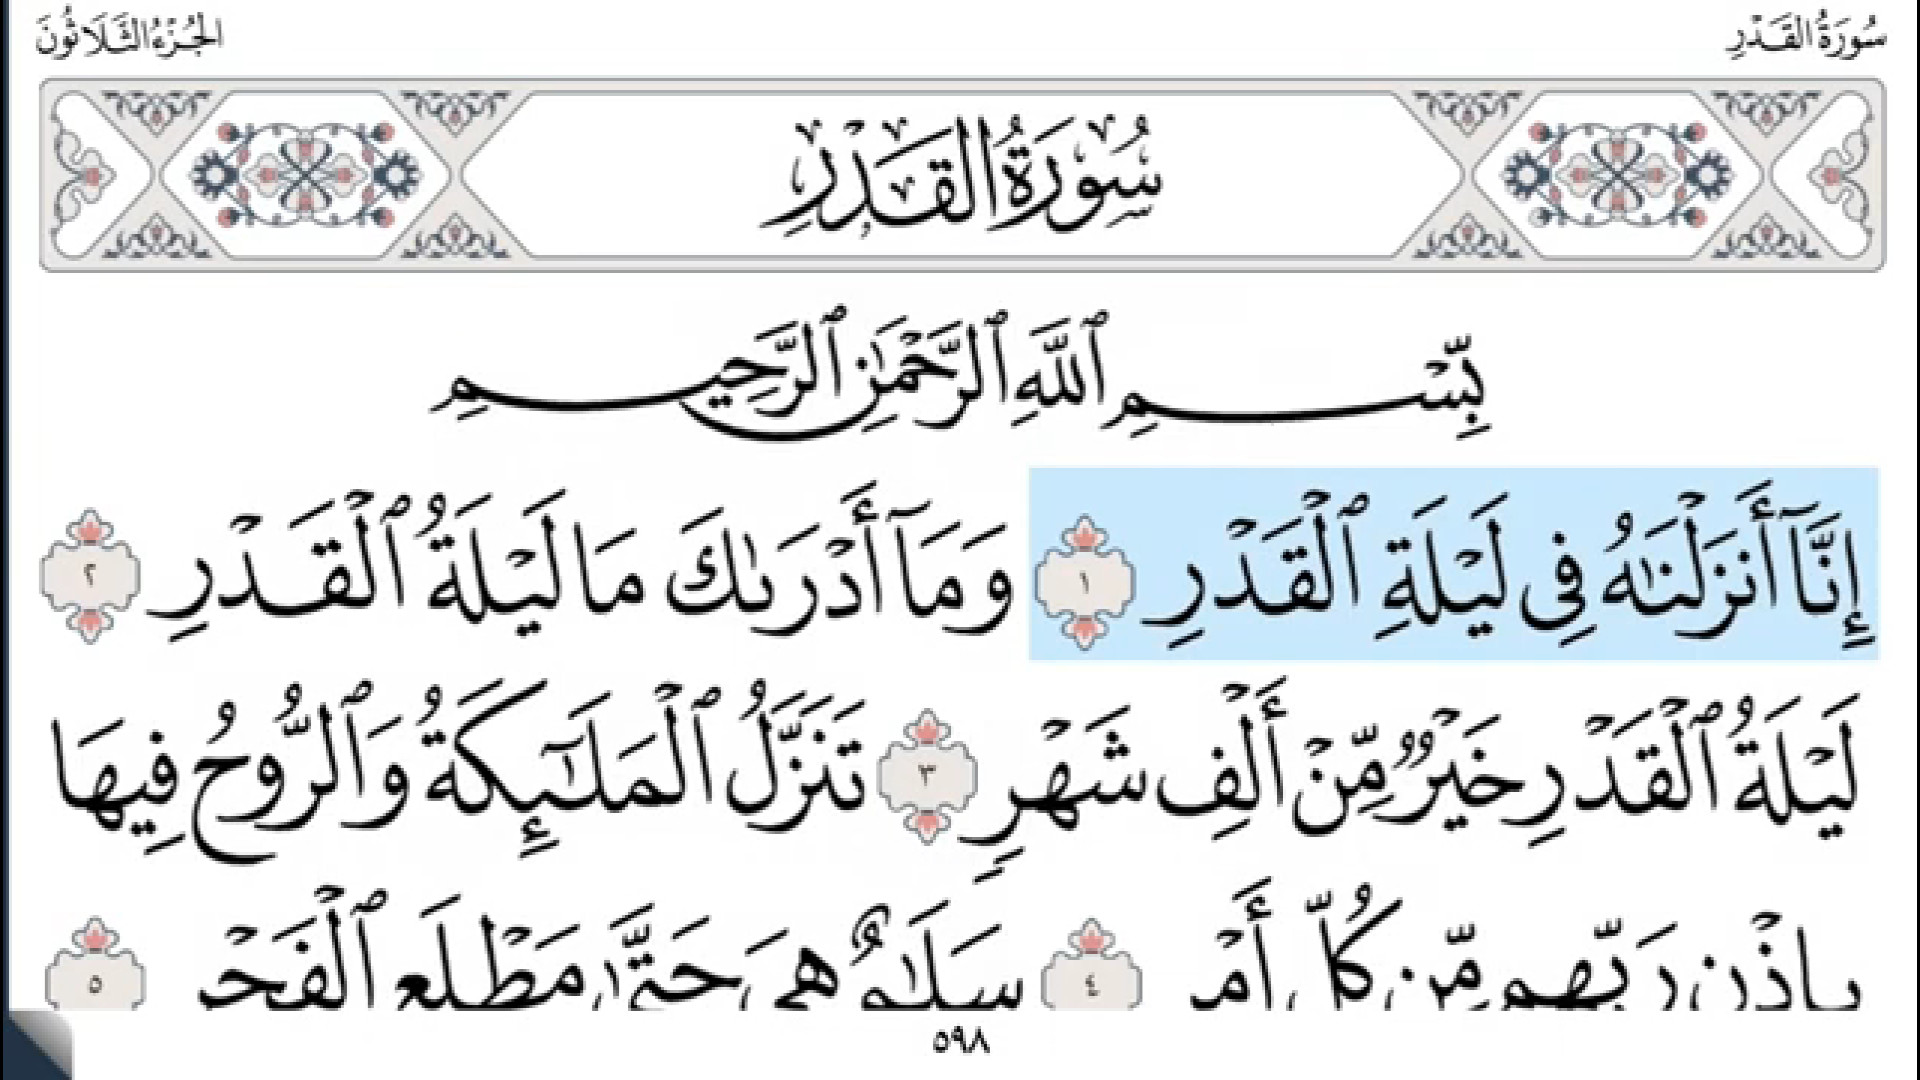 سُورَةُ القَدْرِ
الجُزْءُ الثَّلَاثُونَ
سُورَةُ القَدْرِ
بِّسْمِ ٱللَّهِ ٱلرَّحْمَٰنِ ٱلرَّحِيمِ
إِنَّآ أَنزَلْنَٰهُ فِى لَيْلَةِ ٱلْقَدْرِ ١ وَمَآ أَدْرَىٰكَ مَا لَيْلَةُ ٱلْقَدْرِ ٢
لَيْلَةُ ٱلْقَدْرِ خَيْرٌ مِّنْ أَلْفِ شَهْرٍ ٣ تَنَزَّلُ ٱلْمَلَٰٓئِكَةُ وَٱلرُّوحُ فِيهَا
بِإِذْنِ رَبِّهِم مِّن كُلِّ أَمْرٍ ٤ سَلَٰمٌ هِىَ حَتَّىٰ مَطْلَعِ ٱلْفَجْرِ ٥
٥٩٨